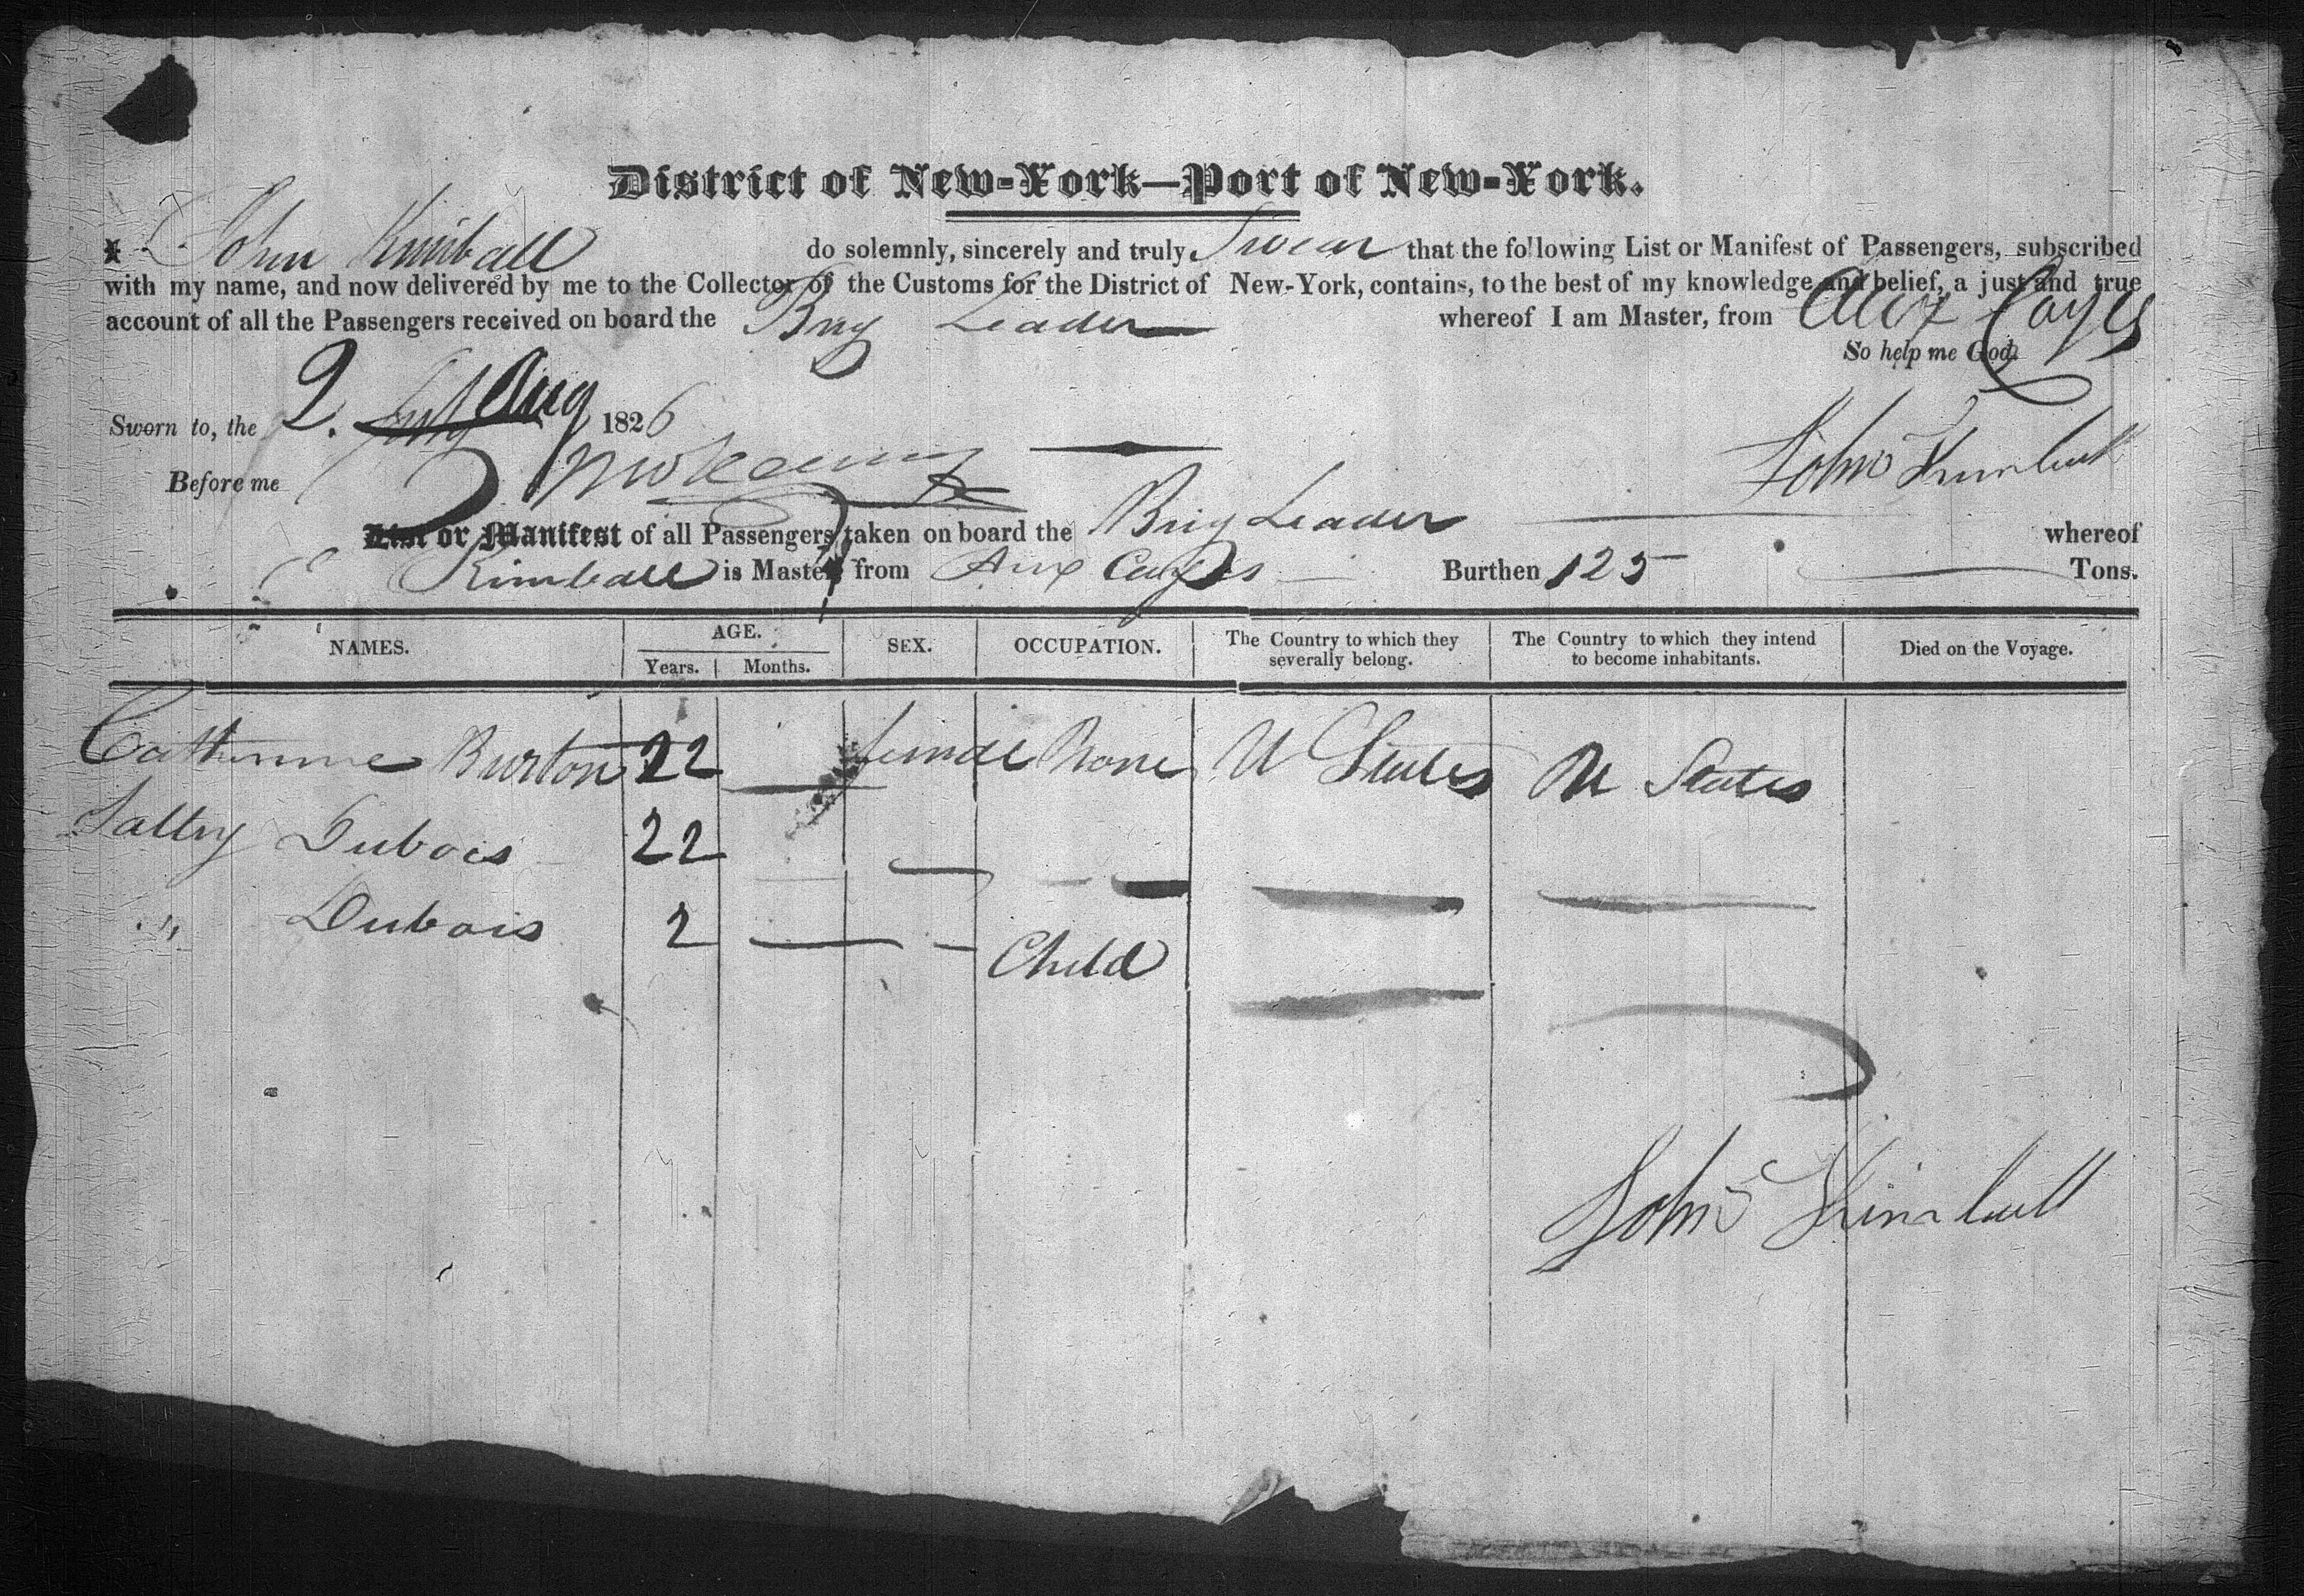 District of New-York—Port of New-York.
I John Kimball do solemnly, sincerely and truly Swear that the following List or Manifest of Passengers, subscribed
with my name, and now delivered by me to the Collector of the Customs for the District of New-York, contains, to the best of my knowledge and belief, a just and true
account of all the Passengers received on board the Brig Leader whereof I am Master, from Aux Cayes
So help me God.
Sworn to, the 2. July Aug 1826
Before me
John Kimball
List or Manifest of all Passengers taken on board the Brig Leader whereof
Kimball is Master, from Aux Cayes Burthen 125 Tons.
NAMES. AGE. Years. Months. SEX. OCCUPATION. The Country to which they severally belong. The Country to which they intend to become inhabitants. Died on the Voyage.
Catherine Burton 22 — female None U States U States
Sally Dubois 22 — — — — —
" Dubois 2 — — Child — —
John Kimball